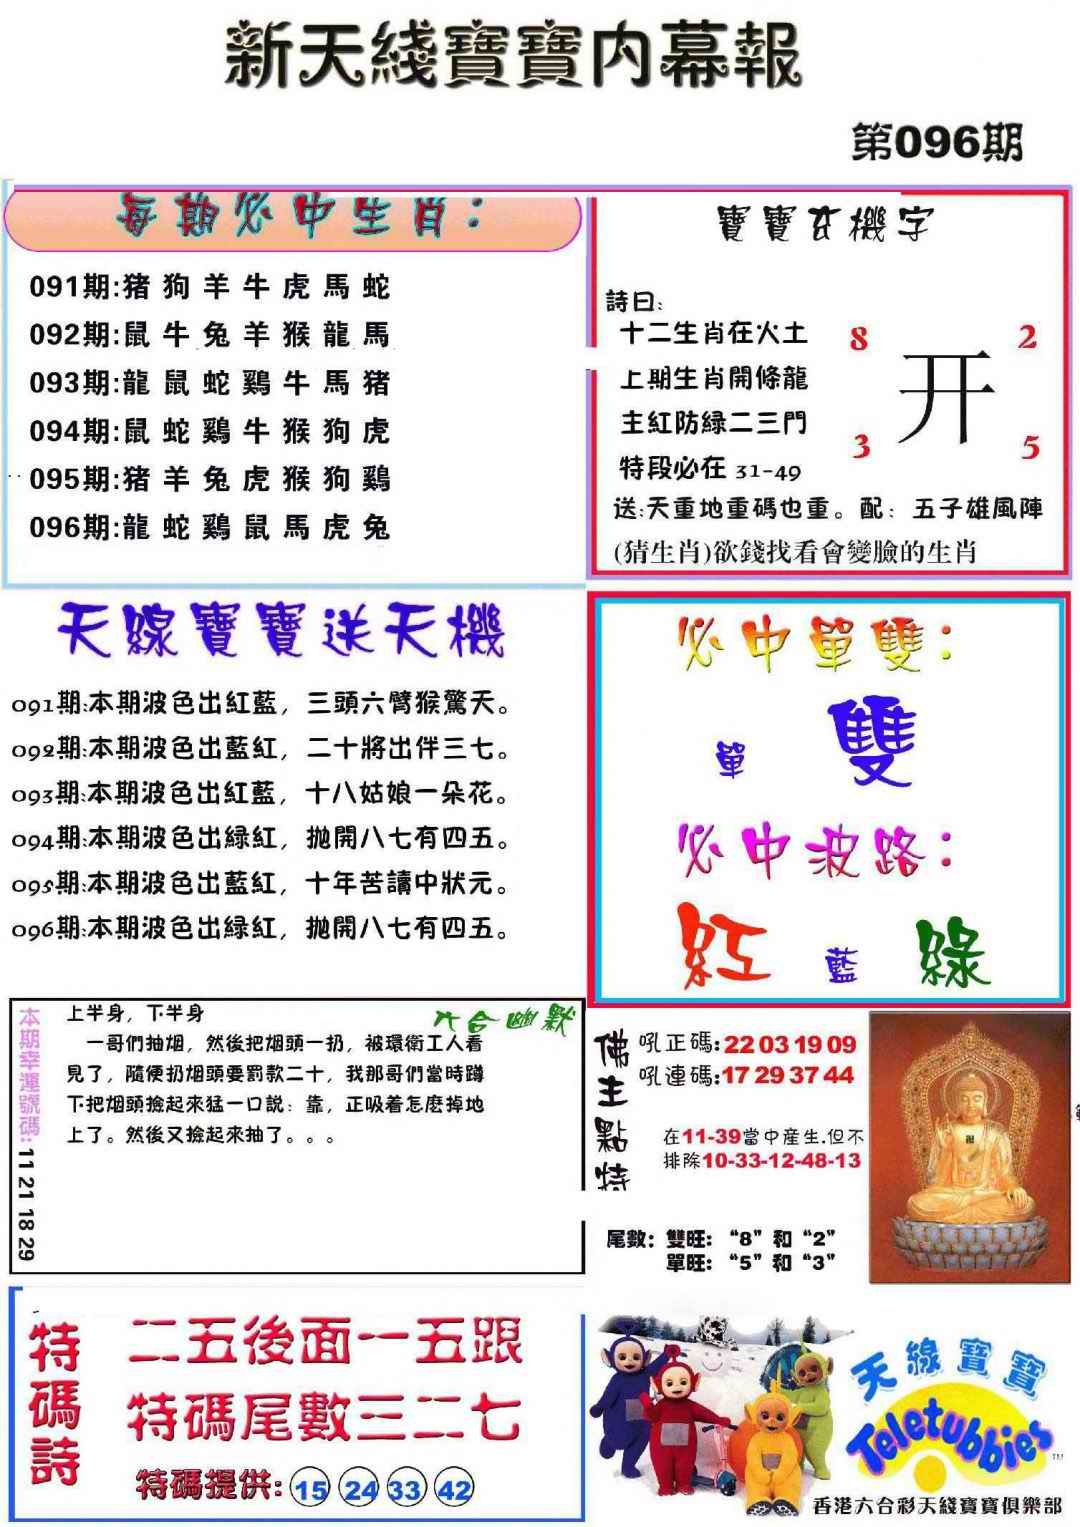 新天綫寶寶内幕報
第096期
每期必中生肖：
091期:猪狗羊牛虎馬蛇
092期:鼠牛兔羊猴龍馬
093期:龍鼠蛇鷄牛馬猪
094期:鼠蛇鷄牛猴狗虎
095期:猪羊兔虎猴狗鷄
096期:龍蛇鷄鼠馬虎兔
寶寶玄機字
詩曰:
十二生肖在火土
上期生肖開條龍
主紅防緑二三門
特段必在 31-49
8 2
开
3 5
送:天重地重碼也重。配：五子雄風陣
(猜生肖)欲錢找看會變臉的生肖
天線寶寶送天機
091期:本期波色出紅藍，三頭六臂猴驚天。
092期:本期波色出藍紅，二十將出伴三七。
093期:本期波色出紅藍，十八姑娘一朵花。
094期:本期波色出緑紅，抛開八七有四五。
095期:本期波色出藍紅，十年苦讀中狀元。
096期:本期波色出緑紅，抛開八七有四五。
必中單雙：
單 雙
必中波路：
紅 藍 綠
本期幸運號碼: 11 21 18 29
六合幽默
上半身，下半身
一哥們抽烟，然後把烟頭一扔，被環衛工人看
見了，隨便扔烟頭要罰款二十，我那哥們當時蹲
下把烟頭撿起來猛一口説：靠，正吸着怎麽掉地
上了。然後又撿起來抽了。。。
佛主點特
吼正碼:22 03 19 09
吼連碼:17 29 37 44
在11-39當中産生.但不
排除10-33-12-48-13
尾數：雙旺：“8”和“2”
單旺：“5”和“3”
特碼詩
二五後面一五跟
特碼尾數三二七
特碼提供: 15 24 33 42
天線寶寶
Teletubbies
TM
香港六合彩天綫寶寶俱樂部